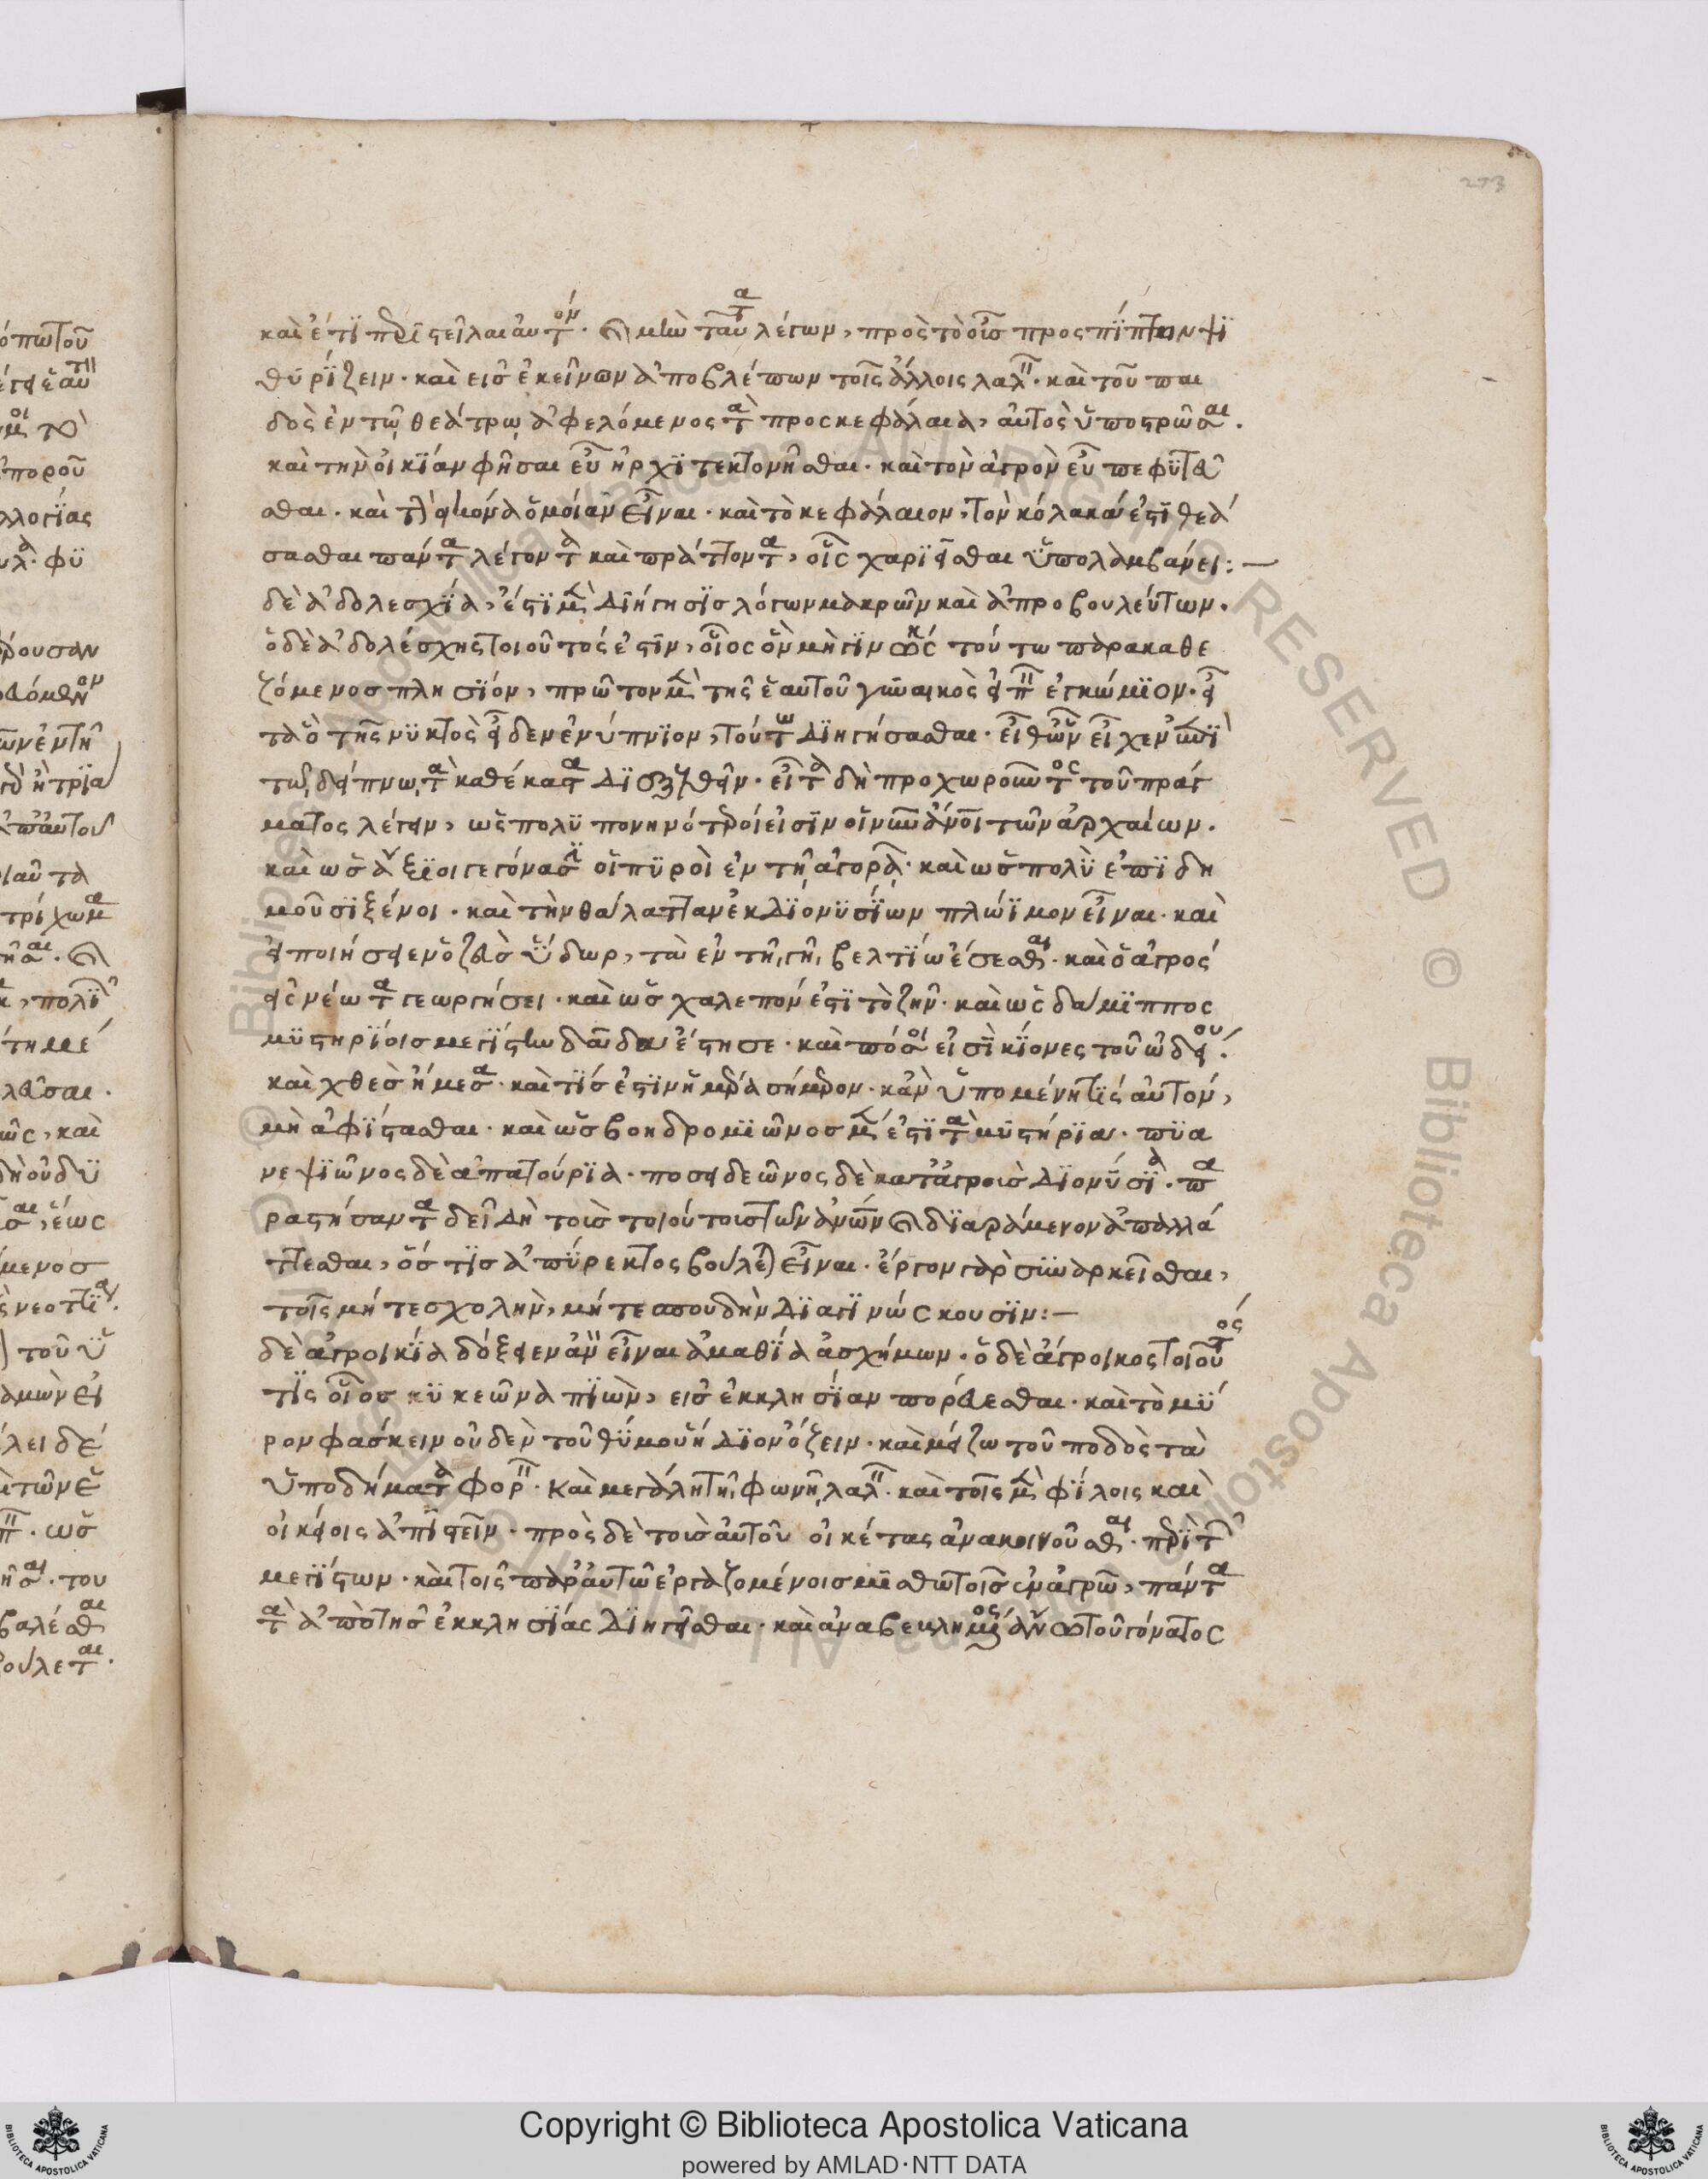 273
καὶ ἔτι περιστεῖλαι αὐτόν. καὶ μὴν ταῦτα λέγων, πρὸς τὸ οὖς προσπίπτων ψι
θυρίζειν. καὶ εἰς ἐκεῖνον ἀποβλέπων τοῖς ἄλλοις λαλεῖν. καὶ τοῦ παι
δὸς ἐν τῷ θεάτρῳ ἀφελόμενος τὰ προσκεφάλαια, αὐτὸς ὑποστρῶσαι.
καὶ τὴν οἰκίαν φῆσαι εὖ ἠρχιτεκτονῆσθαι. καὶ τὸν ἀγρὸν εὖ πεφυτεῦ
σθαι. καὶ τὴν εἰκόνα ὁμοίαν εἶναι. καὶ τὸ κεφάλαιον, τὸν κόλακα ἔστι θεά
σασθαι πάντα λέγοντα καὶ πράττοντα, οἷς χαριεῖσθαι ὑπολαμβάνει:—
δὲ ἀδολεσχία, ἔστι μὲν διήγησις λόγων μακρῶν καὶ ἀπροβουλεύτων.
ὁ δὲ ἀδολέσχης τοιοῦτός ἐστιν, οἷος ὃν μὴ γινώσκει τούτῳ παρακαθε
ζόμενος πλησίον, πρῶτον μὲν τῆς ἑαυτοῦ γυναικὸς εἰπεῖν ἐγκώμιον. εἶ
τα ὃ τῆς νυκτὸς εἶδεν ἐνύπνιον, τοῦτο διηγήσασθαι. εἶθ' ὧν εἶχεν ἐπὶ
τῷ δείπνῳ τὰ καθέκαστα διεξελθεῖν. εἶτα δὴ προχωροῦντος τοῦ πράγ
ματος λέγειν, ὡς πολὺ πονηρότεροί εἰσιν οἱ νῦν ἄνοι τῶν ἀρχαίων.
καὶ ὡς ἄξιοι γεγόνασιν οἱ πυροὶ ἐν τῇ ἀγορᾷ. καὶ ὡς πολὺ ἐπιδη
μοῦσι ξένοι. καὶ τὴν θάλατταν ἐκ Διονυσίων πλώϊμον εἶναι. καὶ
εἰ ποιήσειεν ὁ ζεὺς ὕδωρ, τὰ ἐν τῇ γῇ βελτίω ἔσεσθαι. καὶ ὁ ἀγρὸς
εἰς νέωτα γεωργήσει. καὶ ὡς χαλεπόν ἐστι τὸ ζῆν. καὶ ὡς δάμιππος
μυστηρίοις μεγίστην δᾷδα ἔστησε. καὶ πόσοι εἰσὶ κίονες τοῦ ᾠδείου.
καὶ χθὲς ἤμεσα. καὶ τίς ἐστιν ἡμέρα σήμερον. κἂν ὑπομένῃ τις αὐτόν,
μὴ ἀφίστασθαι. καὶ ὡς βοηδρομιῶνος μέν ἐστι τὰ μυστήρια. πυα
νεψιῶνος δὲ ἀπατούρια. ποσειδεῶνος δὲ κατ' ἀγροὺς Διονύσια. πα
ραστήσαντα δεῖ δὴ τοὺς τοιούτους τῶν ἀνων καὶ διαράμενον ἀπαλλά
ττεσθαι, ὅστις ἀπύρεκτος βούλεται εἶναι. ἔργον γὰρ συναρκεῖσθαι,
τοῖς μήτε σχολὴν, μήτε σπουδὴν διαγινώσκουσιν:—
δὲ ἀγροικία δόξειεν ἂν εἶναι ἀμαθία ἀσχήμων. ὁ δὲ ἄγροικος τοιοῦτός
τις οἷος κυκεῶνα πιὼν, εἰς ἐκκλησίαν πορεύεσθαι. καὶ τὸ μύ
ρον φάσκειν οὐδὲν τοῦ θύμου ἥδιον ὄζειν. καὶ μείζω τοῦ ποδὸς τὰ
ὑποδήματα φορεῖν. καὶ μεγάλῃ τῇ φωνῇ λαλεῖν. καὶ τοῖς μὲν φίλοις καὶ
οἰκείοις ἀπιστεῖν. πρὸς δὲ τοὺς αὐτοῦ οἰκέτας ἀνακοινοῦσθαι περὶ τῶν
μεγίστων. καὶ τοῖς παρ' αὐτῷ ἐργαζομένοις μισθωτοῖς ἐν ἀγρῷ, πάντα
τὰ ἀπὸ τῆς ἐκκλησίας διηγεῖσθαι. καὶ ἀναβεβλημένος ἄνω τοῦ γόνατος
Copyright © Biblioteca Apostolica Vaticana
powered by AMLAD·NTT DATA